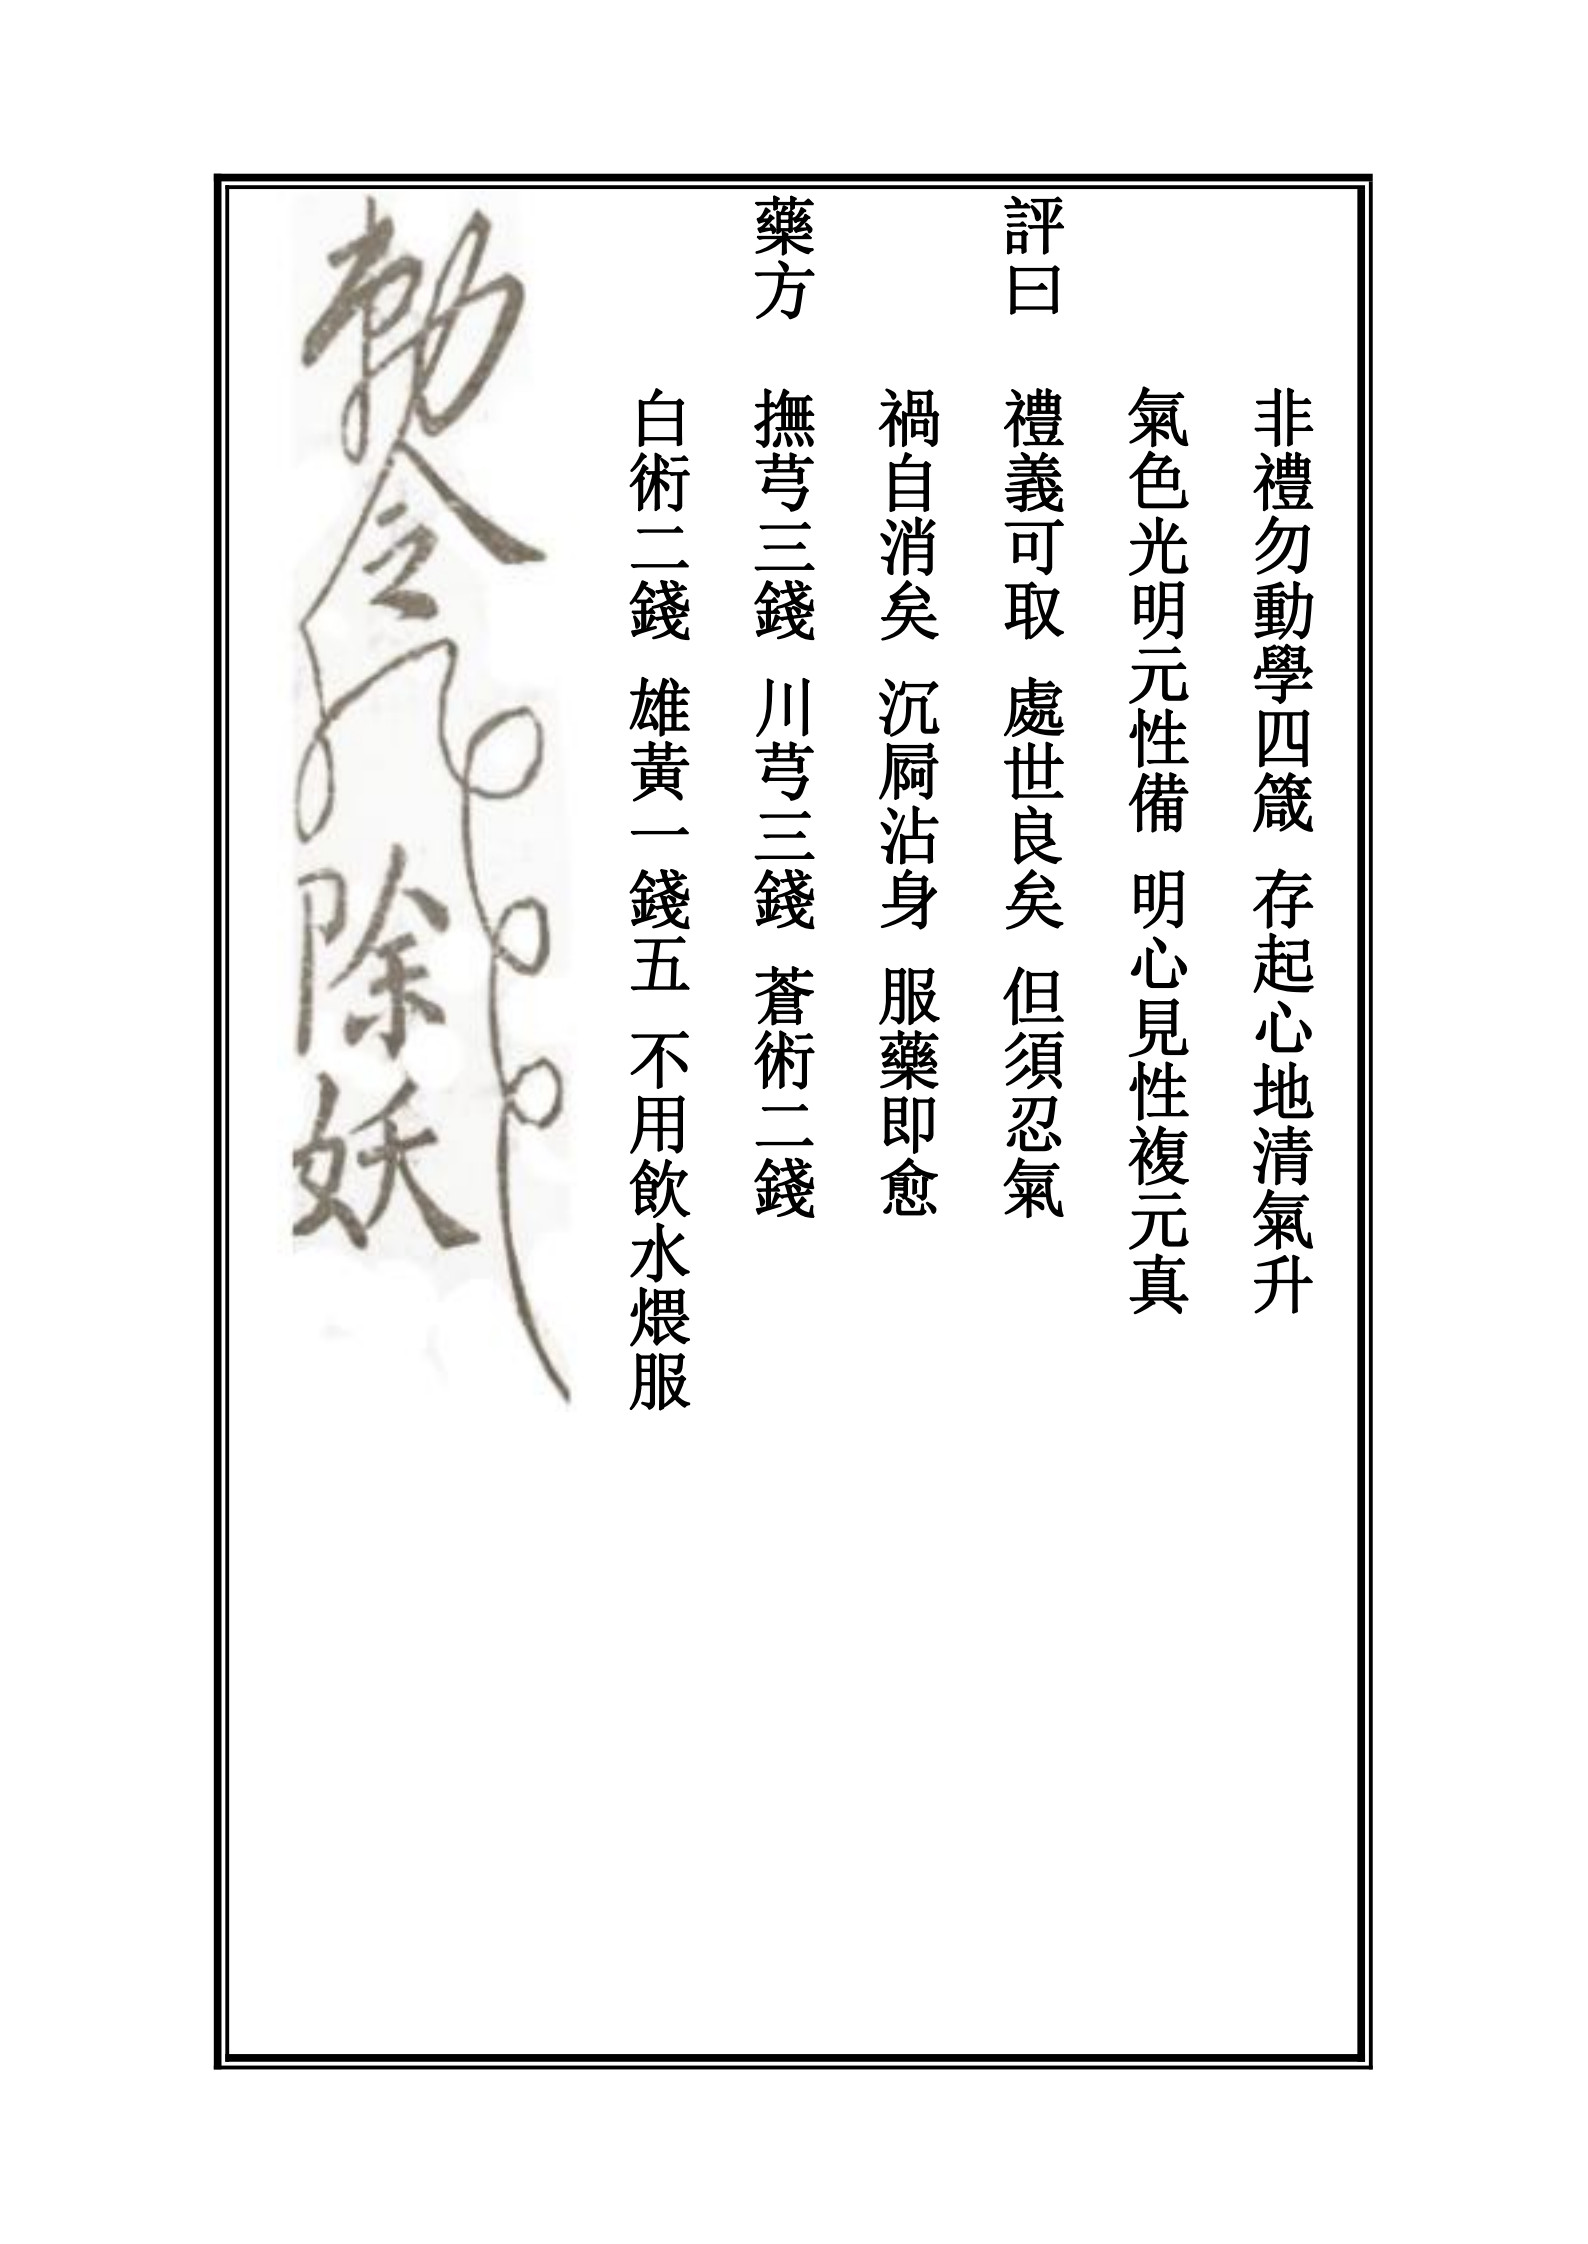 非禮勿動學四箴 存起心地清氣升
氣色光明元性備 明心見性複元真
評曰 禮義可取 處世良矣 但須忍氣
禍自消矣 沉屙沾身 服藥即愈
藥方 撫芎三錢 川芎三錢 蒼術二錢
白術二錢 雄黃一錢五 不用飲水煨服
勅令
除妖